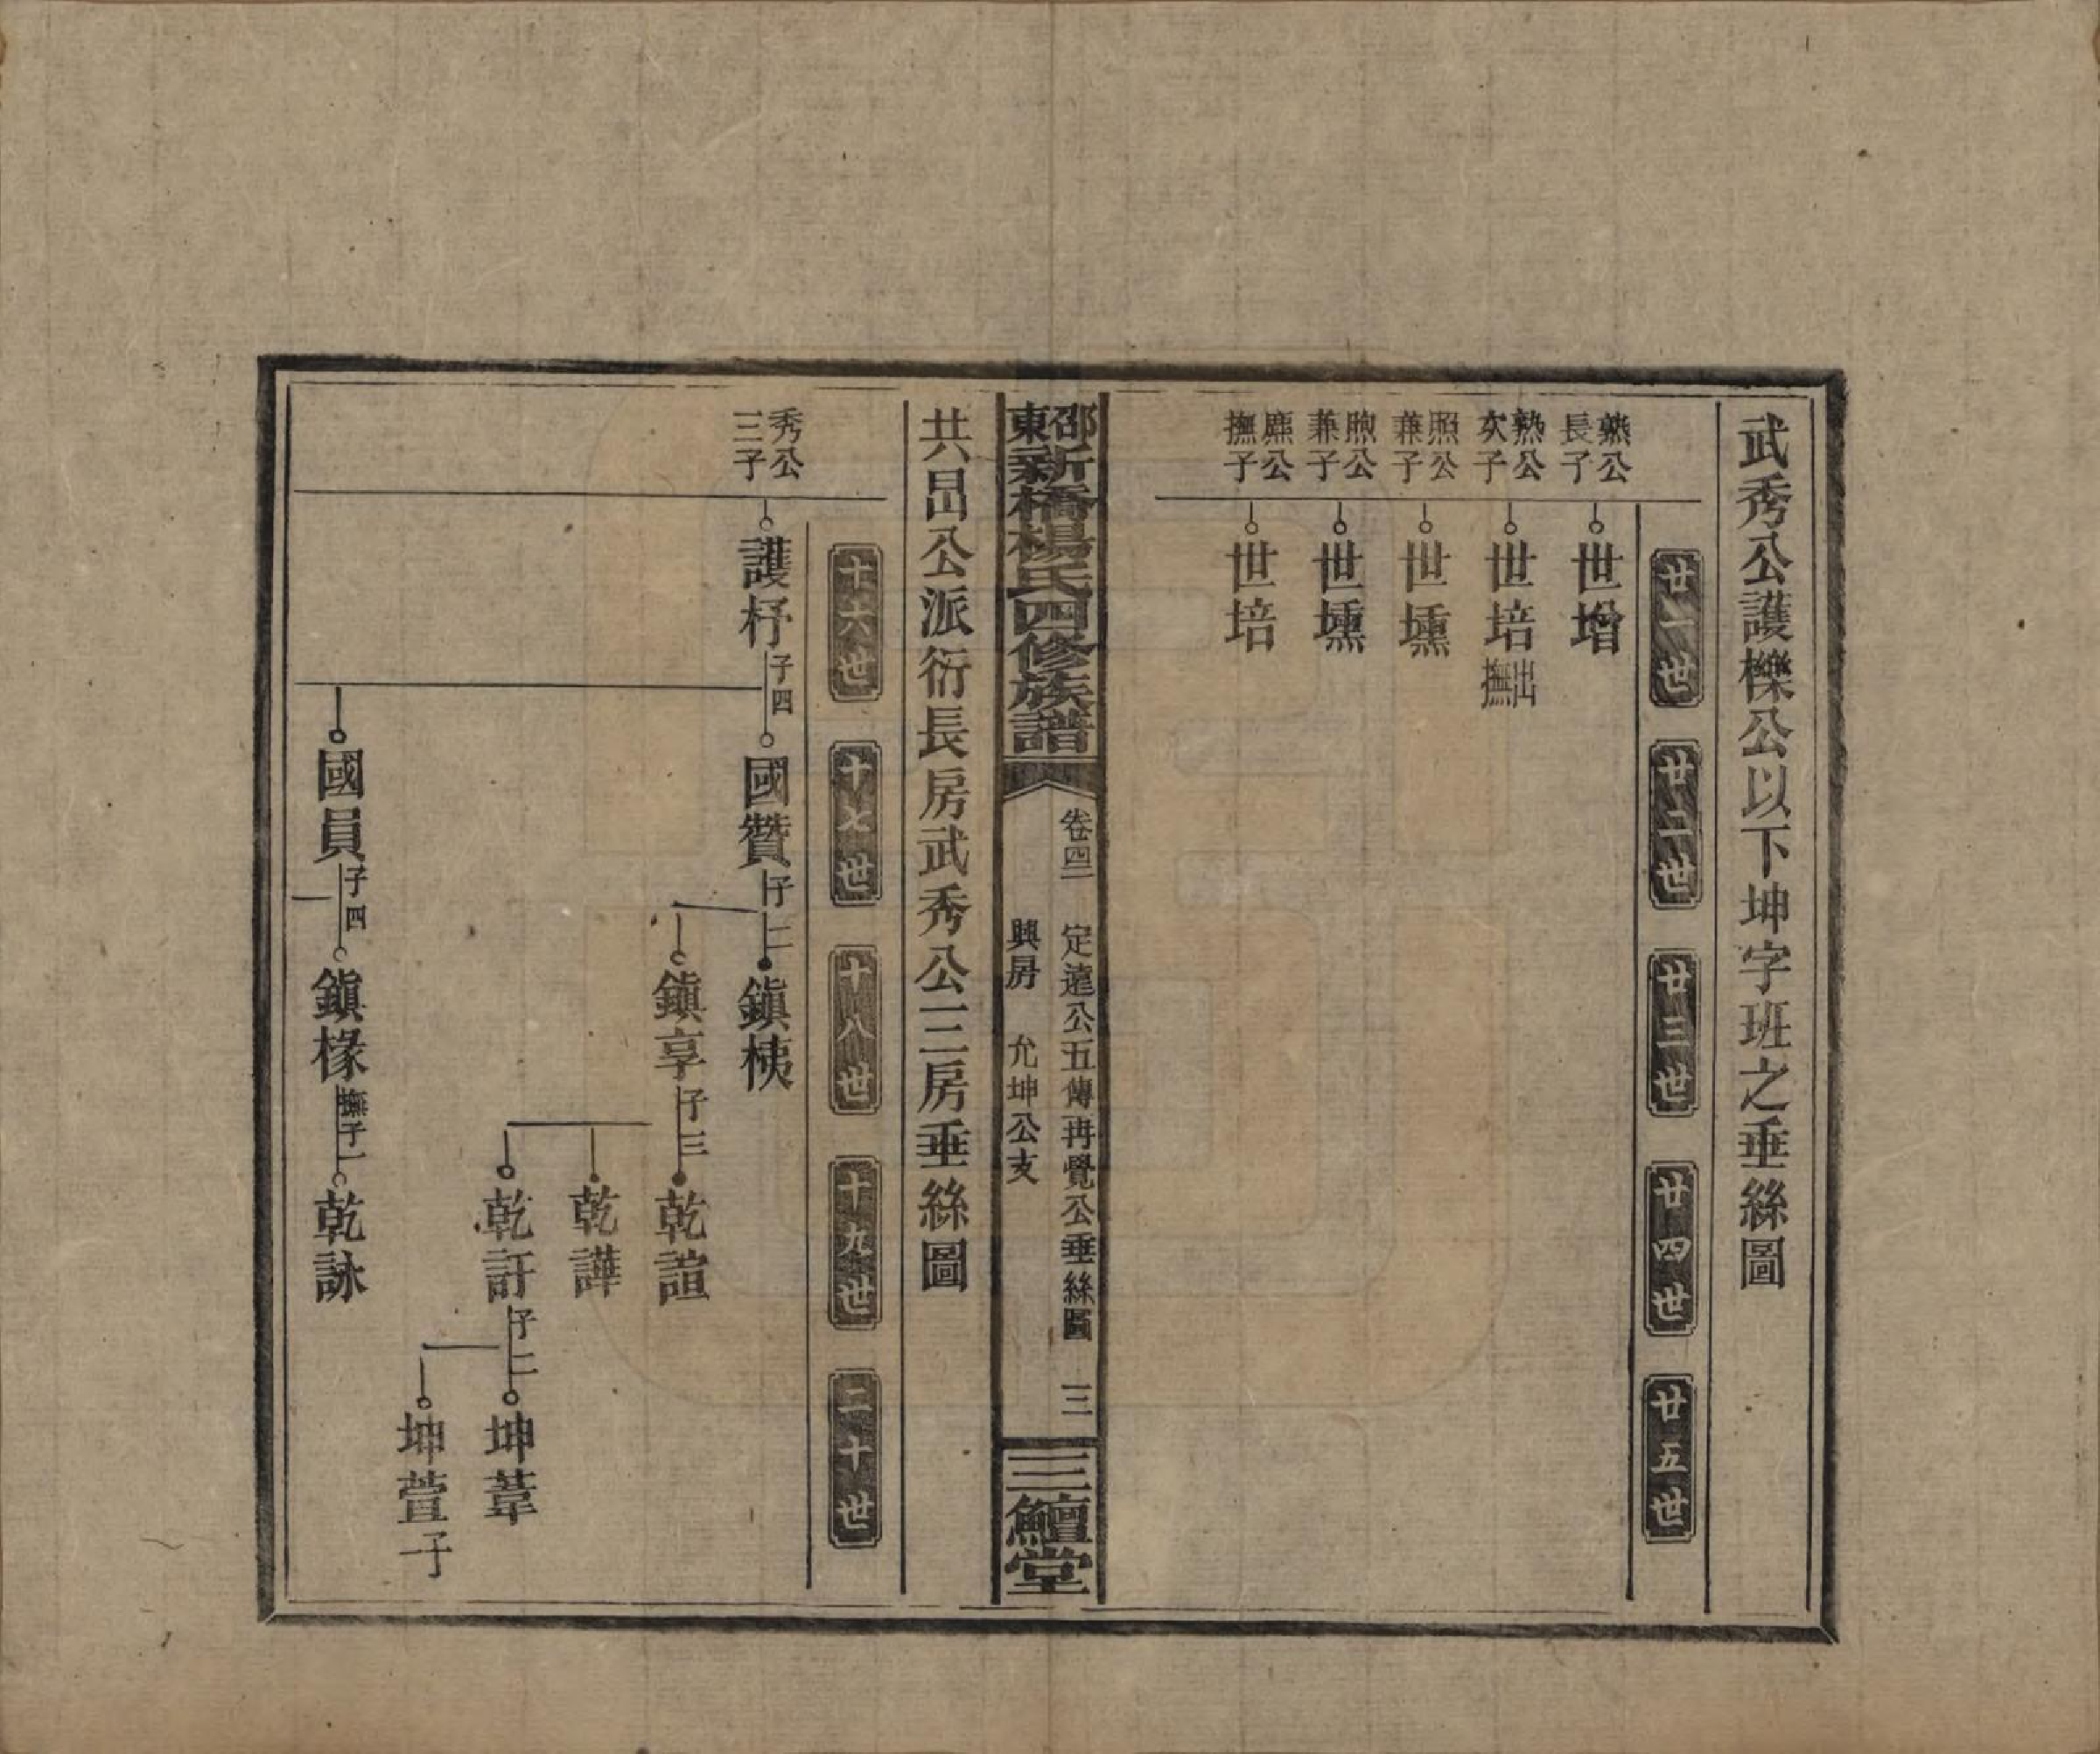 武秀公護櫟公以下坤字班之垂絲圖
廿一世
廿二世
廿三世
廿四世
廿五世
熟公長子
世增
熟公次子
世培出撫
照公兼子
世壎
煦公兼子
世壎
熊公撫子
世培
邵東新橋楊氏四修族譜
卷四二
定遠公五傳再覺公垂絲圖
三
興房
允坤公支
三鱣堂
共昌公派衍長房武秀公三房垂絲圖
十六世
十七世
十八世
十九世
二十世
秀公三子
護杼子四
國贊子二
鎮桋
鎮享子三
乾諠
乾譁
乾訏子二
坤葦
坤萱子
國員子四
鎮椽撫子一
乾詠